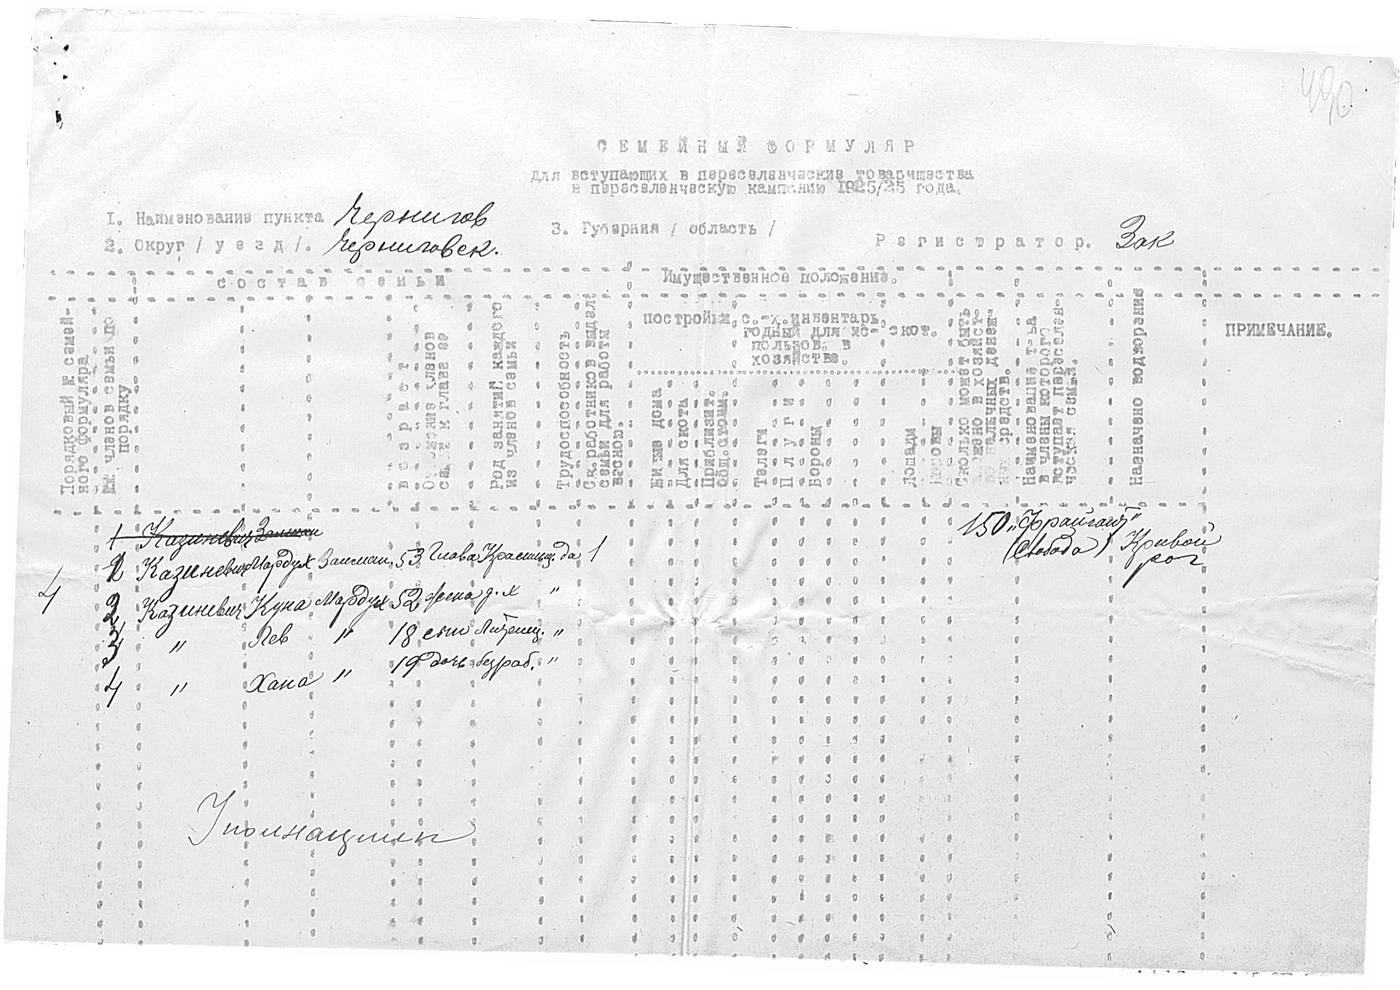 490
СЕМЕЙНЫЙ ФОРМУЛЯР
для вступающих в переселенческие товарищества
в переселенческую кампанию 1925/25 года.
1. Наименование пункта Чернигов
3. Губерния / область /
2. Округ / уезд /. Черниговск.
Регистратор. Зак
состав семьи
Имущественное положение.
Порядковый № семейного формуляра
№№ членов семьи по порядку
возраст
Отношение членов семьи к главе ее
Род занятий каждого из членов семьи
Трудоспособность
Ск. работников выдел. семья для работы весною.
постройки
с.-х. инвентарь годный для использов. в хозяйстве.
скот.
Жилые дома
Для скота
Приблизит. общ. стоим.
Телеги
Плуги
Бороны
Лошади
Коровы
Сколько может быть вложено в хозяйство наличных денежных средств.
Наименование т-ва в члены которого вступает переселенческая семья.
Назначено водворение
ПРИМЕЧАНИЕ.
1 Казиневич Залман
1 Казиневич Мордух Залман. 53 Глава Красильщ. да 1 150 „Фрайгайт" (Свобода) Кривой рог
4
2 Казиневич Куна Мордух 52 жена д. х "
3 " Лев " 18 сын "
4 " Хана " 19 дочь безраб. "